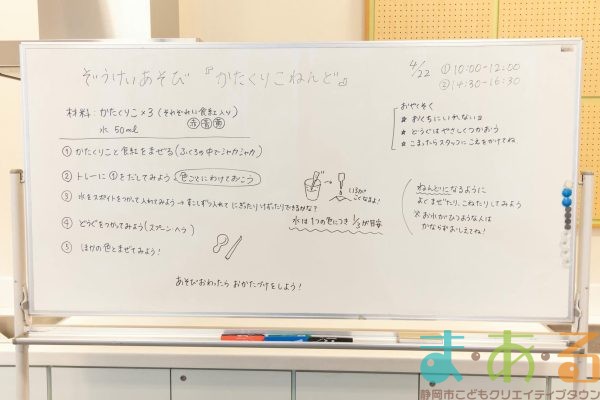 ぞうけいあそび『かたくりこねんど』
4/22 ①10:00-12:00
②14:30-16:30
材料：かたくりこ×3（それぞれに食紅入り）
赤 青 黄
水 50ml
①かたくりこと食紅をまぜる（ふくろの中でシャカシャカ）
②トレーに①をだしてみよう 色ごとにわけておこう
③水をスポイトをつかって入れてみよう → すこしずつ入れて にぎったりけずったりできるかな？
④どうぐをつかってみよう（スプーン・へら）
⑤ほかの色とまぜてみよう！
いろがこくなるよ！
水は1つの色につき 1/3が目安
あそびおわったら おかたづけをしよう！
おやくそく
★おくちにいれない
★どうぐはやさしくつかおう
★こまったらスタッフにこえをかけてね
ねんどになるように
よくまぜたり、こねたりしてみよう
※お水がひつような人は
かならずおしえてね！
ま・あ・る
静岡市こどもクリエイティブタウン